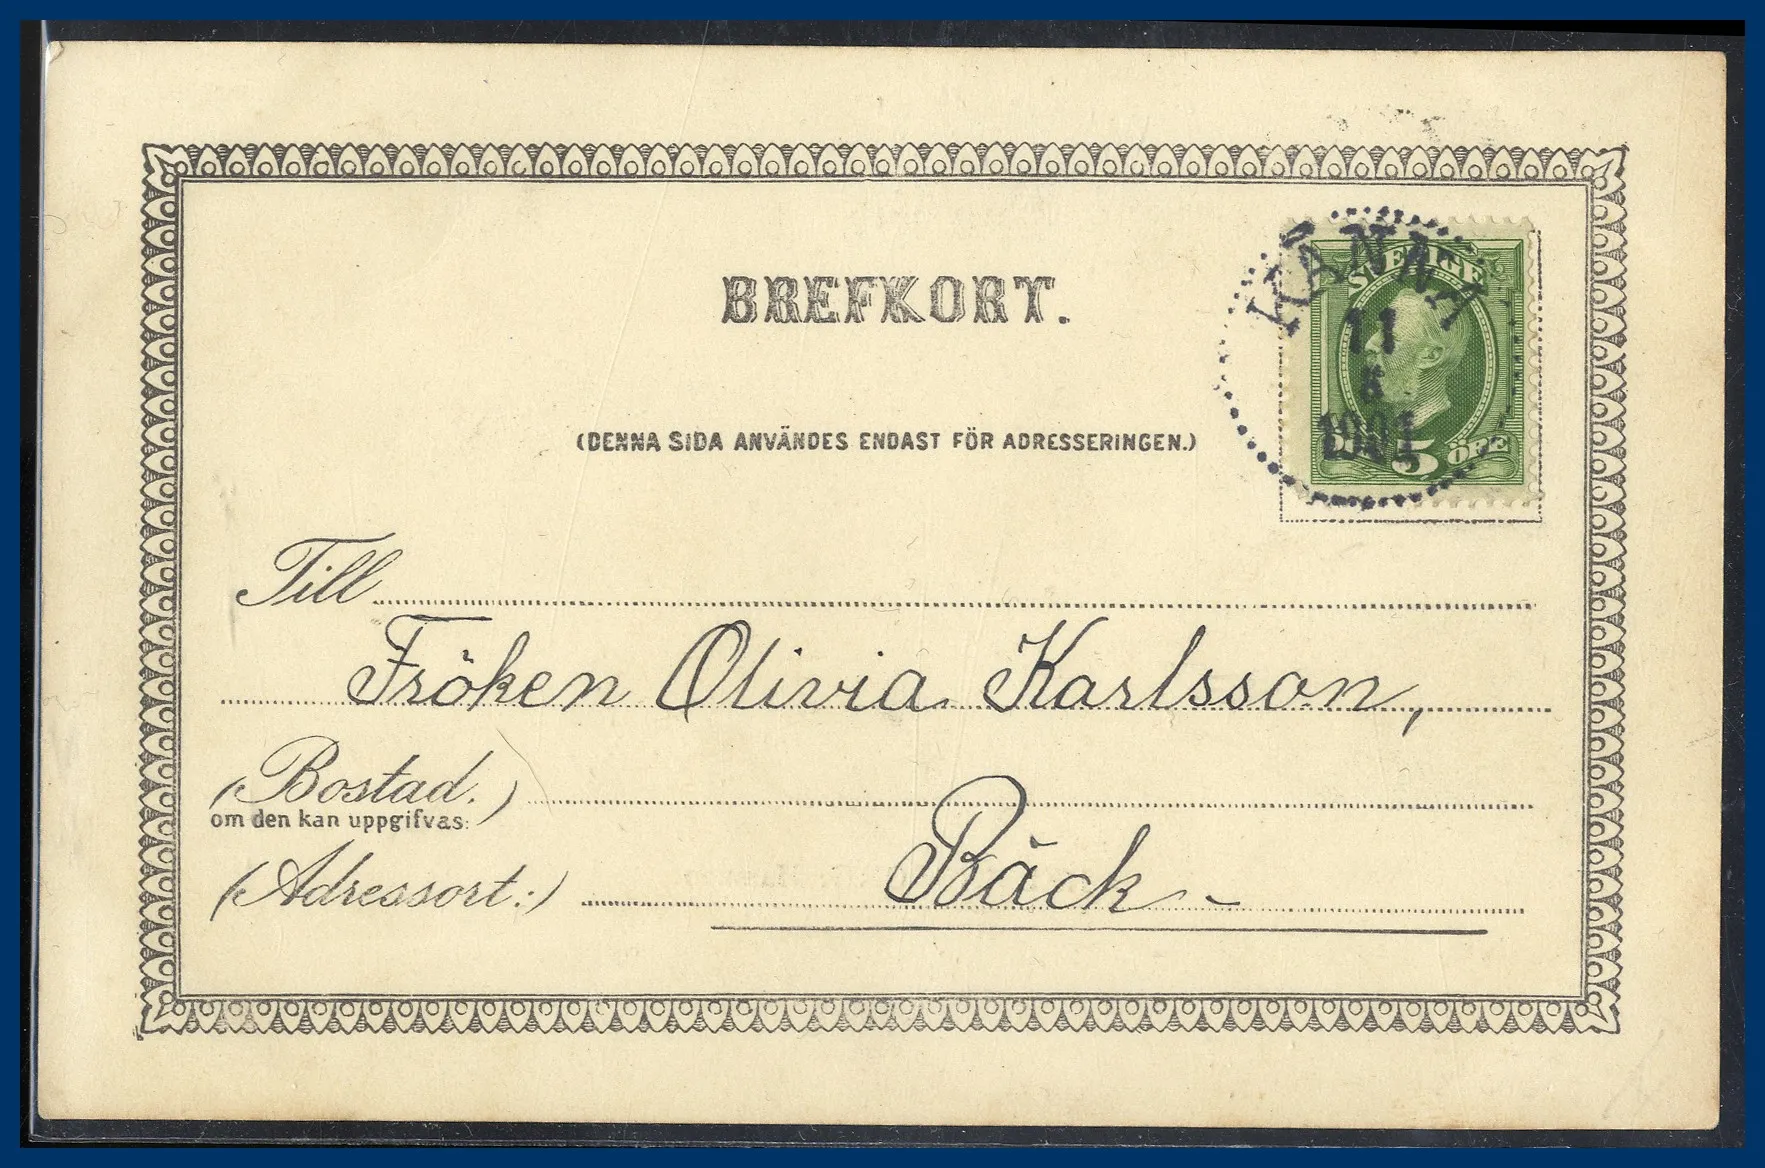 BREFKORT.
SVERIGE
KANNA
11
5
1901
5 ÖRE
(DENNA SIDA ANVÄNDES ENDAST FÖR ADRESSERINGEN.)
Till
Fröken Olivia Karlsson,
(Bostad.)
om den kan uppgifvas:
(Adressort:) Bäck